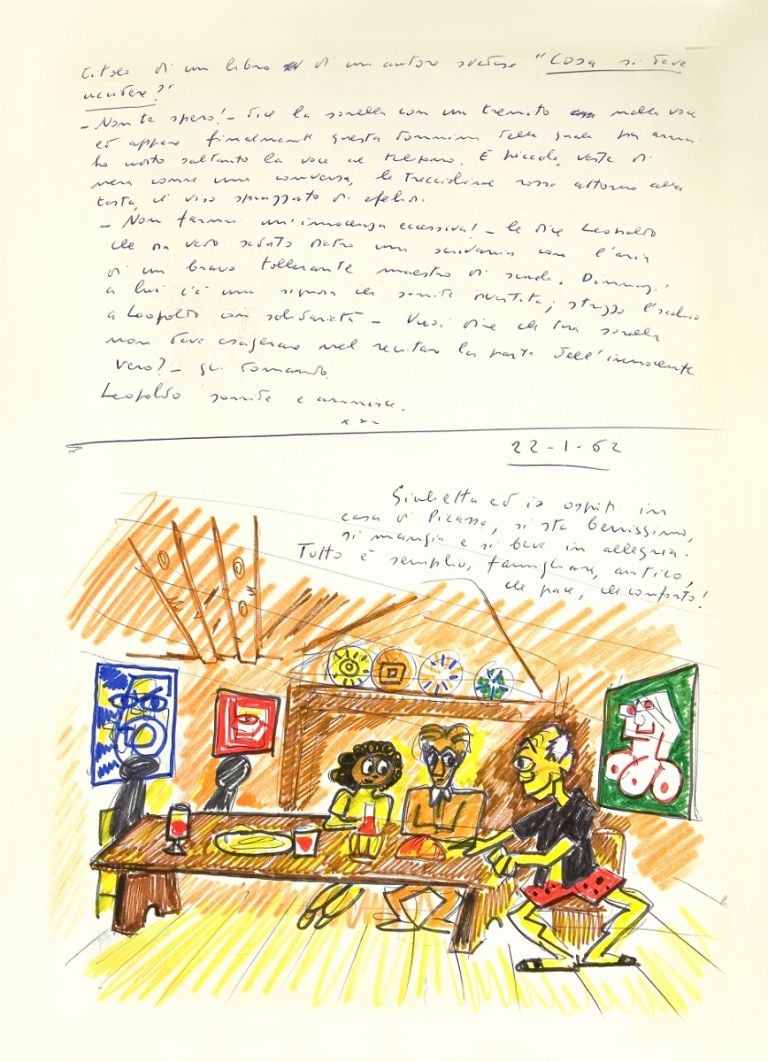 titolo di un libro di un autore svedese "Cosa si deve
uccidere?"
- Non te spero! - dice la sorella con un tremito nella voce
ed appare finalmente questa donnina della quale
ho udito soltanto la voce al telefono. È piccola, veste di
nero come una conversa, le treccioline rosse attorno alla
testa, il viso spruzzato di efelidi.
- Non farmi un'innocenza eccessiva! - le dice Leopoldo
che ora vedo seduto dietro una scrivania con l'aria
di un bravo tollerante maestro di scuola. Dinnanzi
a lui c'è una signora che sorride divertita; strizzo l'occhio
a Leopoldo con solidarietà - Vuoi dire che tua sorella
non deve esagerare nel recitare la parte dell'innocente
vero? - gli domando.
Leopoldo sorride e annuisce.
x x x
22-1-62
Giulietta ed io ospiti in
casa di Picasso, si sta benissimo,
si mangia e si beve in allegria.
Tutto è semplice, famigliare, antico,
che pace, che conforto!